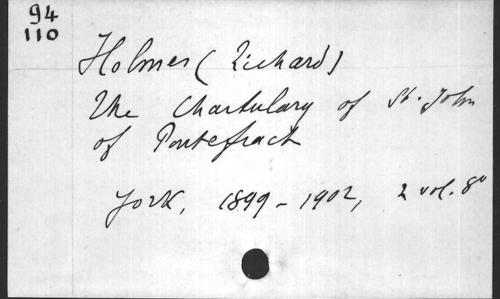 94
110
Holmes (Richard)
The Chartulary of St. John
of Pontefract
York, 1899-1902, 2 vol. 8°